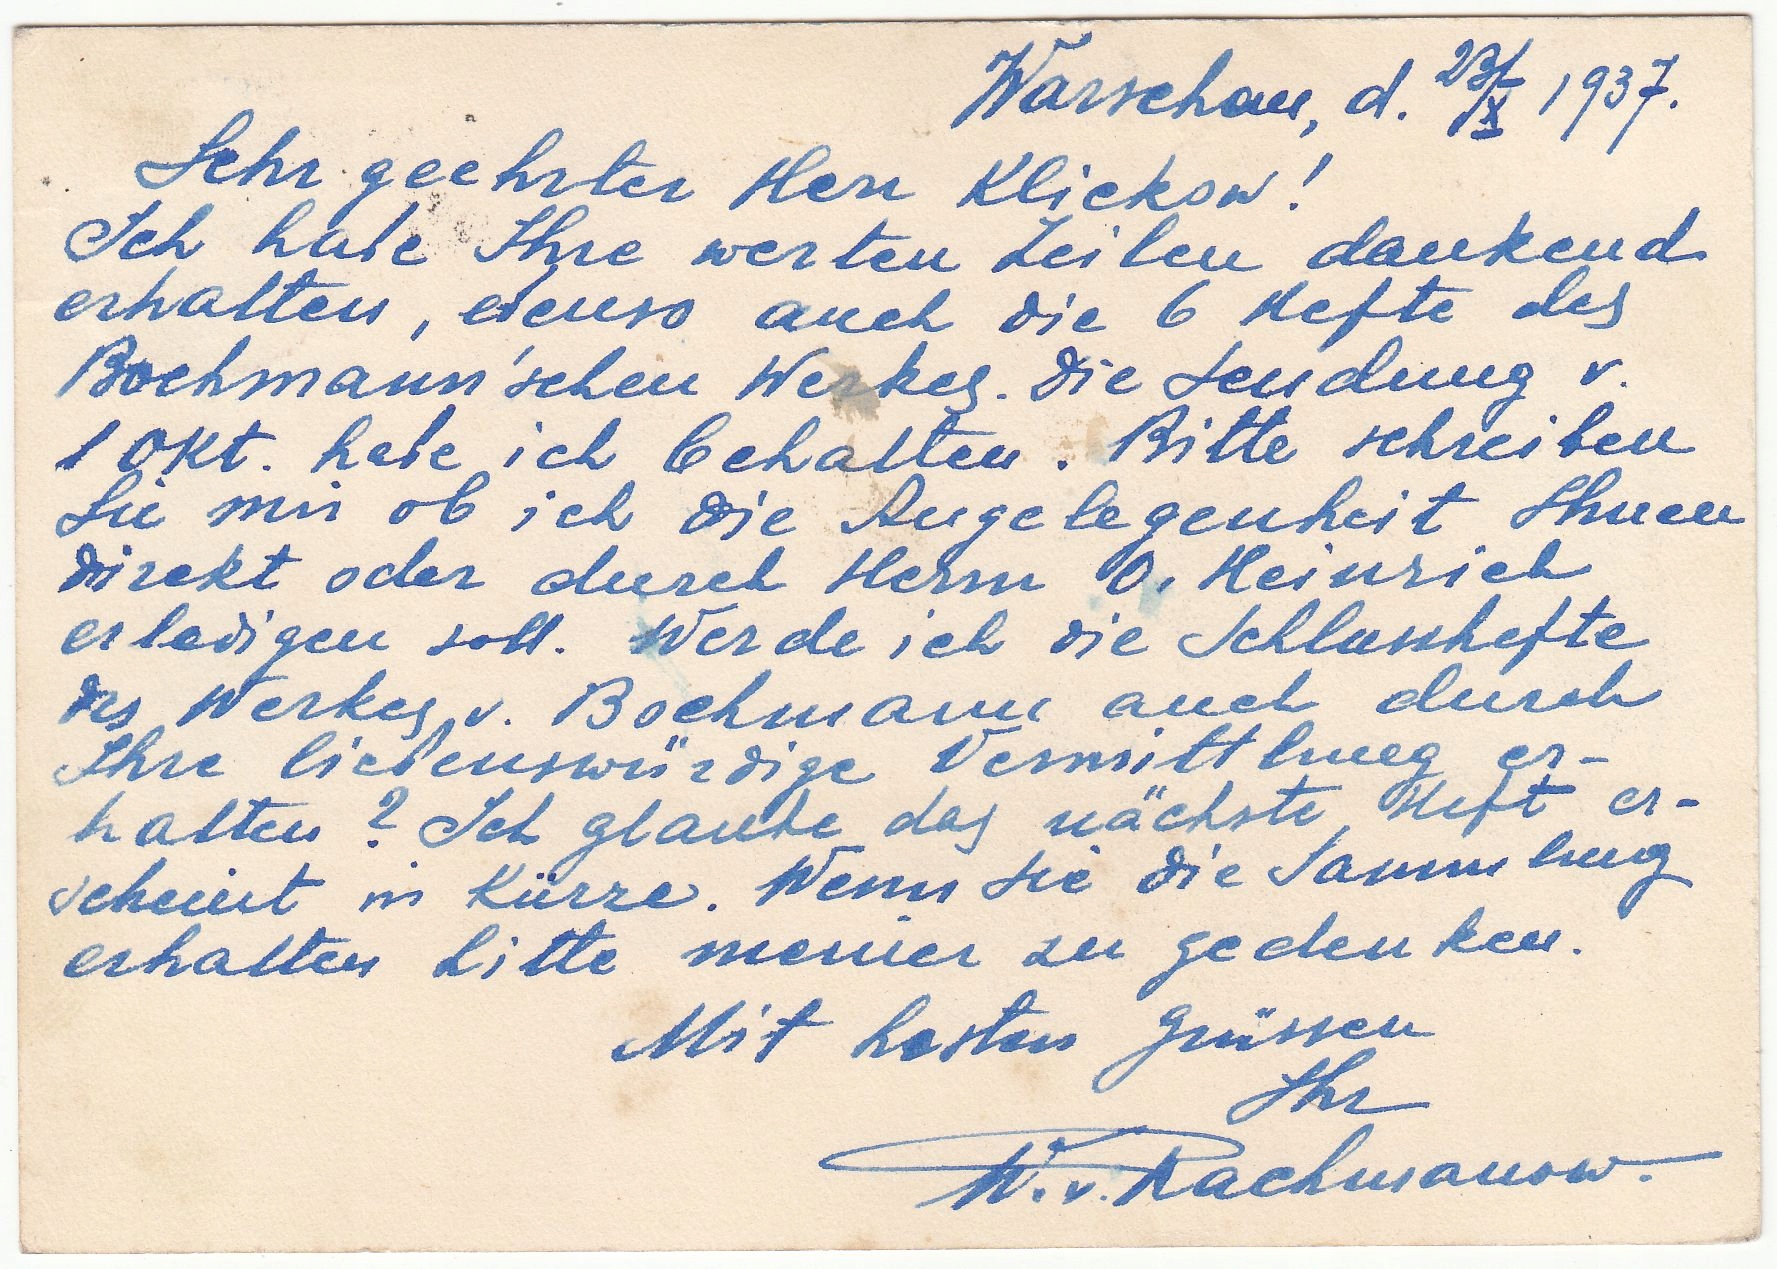 Warschau, d. 23/X 1937.
Sehr geehrter Herr Klickow!
Ich habe Ihre werten Zeilen dankend
erhalten, ebenso auch die 6 Hefte des
Bochmann'schen Werkes. Die Sendung v.
1 Okt. habe ich behalten. Bitte schreiben
Sie mir ob ich die Angelegenheit Ihnen
direkt oder durch Herrn O. Heinrich
erledigen soll. Werde ich die Schlusshefte
des Werkes v. Bochmann auch durch
Ihre liebenswürdige Vermittlung er-
halten? Ich glaube das nächste Heft er-
scheint in Kürze. Wenn Sie die Sammlung
erhalten bitte meiner zu gedenken.
Mit besten Grüssen
Ihr
W. v. Rachmanow.